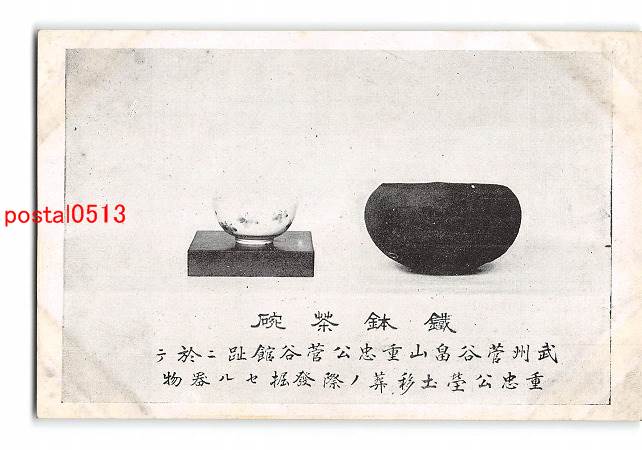 postal0513
鐵鉢茶碗
武州菅谷畠山重忠公菅谷館趾ニ於テ
重忠公塋土移葬ノ際發掘セル器物